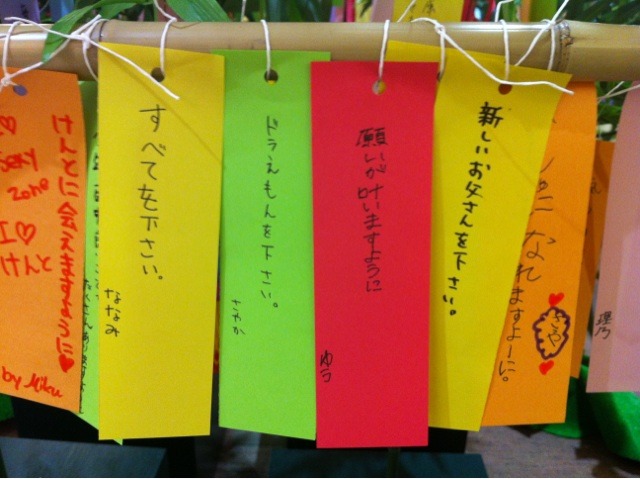 けんとに会えますように♥
I♡
けんと
by Miku
すべてを下さい。
ななみ
ドラえもんを下さい。
さやか
願いが叶いますように
ゆう
新しいお父さんを下さい。
なれますよーに。
さや
理乃